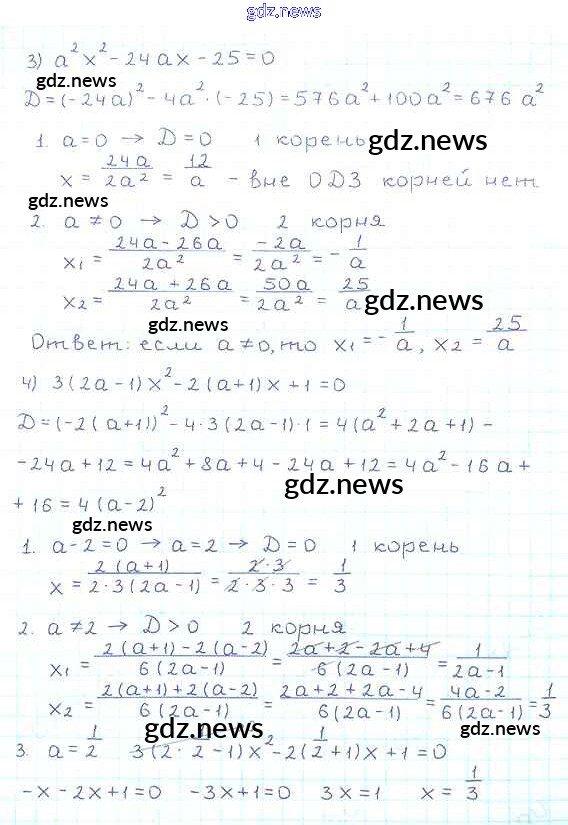 gdz.news
3) a²x² - 24ax - 25 = 0
gdz.news
D = (-24a)² - 4a² · (-25) = 576a² + 100a² = 676a²
1. a = 0 → D = 0 1 корень
gdz.news
x = 24a/2a² = 12/a - вне ОДЗ корней нет
gdz.news
2. a ≠ 0 → D > 0 2 корня
x₁ = (24a - 26a)/2a² = -2a/2a² = -1/a
x₂ = (24a + 26a)/2a² = 50a/2a² = 25/a
gdz.news
gdz.news
Ответ: если a ≠ 0, то x₁ = -1/a, x₂ = 25/a
4) 3(2a-1)x² - 2(a+1)x + 1 = 0
D = (-2(a+1))² - 4·3(2a-1)·1 = 4(a² + 2a + 1) -
- 24a + 12 = 4a² + 8a + 4 - 24a + 12 = 4a² - 16a +
gdz.news
+ 16 = 4(a-2)²
gdz.news
1. a - 2 = 0 → a = 2 → D = 0 1 корень
x = 2(a+1)/(2·3(2a-1)) = 2·3/(2·3·3) = 1/3
2. a ≠ 2 → D > 0 2 корня
x₁ = (2(a+1) - 2(a-2))/(6(2a-1)) = (2a + 2 - 2a + 4)/(6(2a-1)) = 1/(2a-1)
x₂ = (2(a+1) + 2(a-2))/(6(2a-1)) = (2a + 2 + 2a - 4)/(6(2a-1)) = (4a-2)/(6(2a-1)) = 1/3
gdz.news
gdz.news
3. a = 1/2 3(2·1/2 - 1)x² - 2(1/2 + 1)x + 1 = 0
-x - 2x + 1 = 0 -3x + 1 = 0 3x = 1 x = 1/3